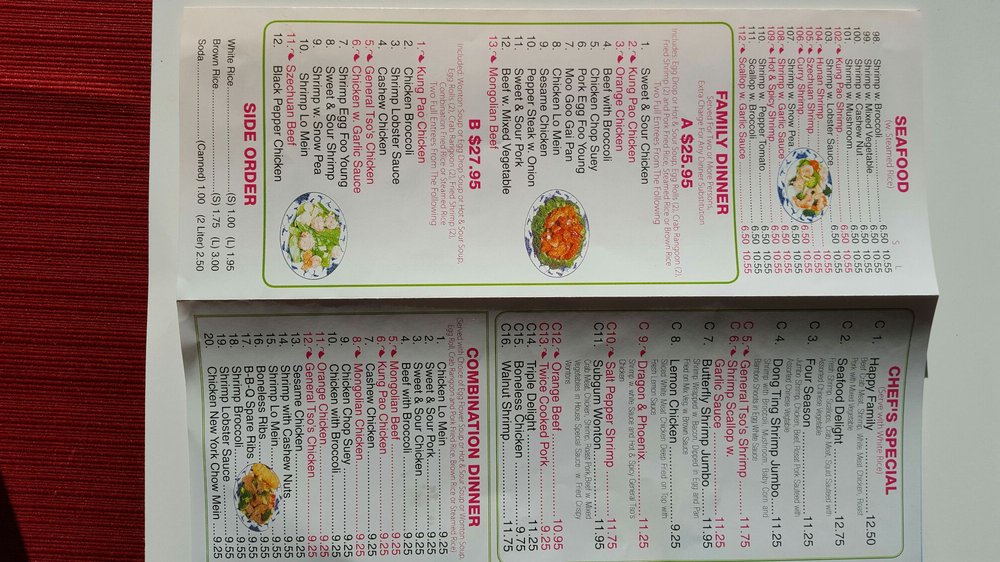 SEAFOOD
(w. Steamed Rice)
S L
98. Shrimp w. Broccoli 6.50 10.55
99. Shrimp w. Mixed Vegetable 6.50 10.55
100. Shrimp w. Cashew Nut 6.50 10.55
101. Shrimp w. Mushroom 6.50 10.55
102. Kung Pao Shrimp 6.50 10.55
103. Shrimp w. Lobster Sauce 6.50 10.55
104. Hunan Shrimp 6.50 10.55
105. Szechuan Shrimp 6.50 10.55
106. Curry Shrimp 6.50 10.55
107. Shrimp w. Snow Pea 6.50 10.55
108. Shrimp w. Garlic Sauce 6.50 10.55
109. Hot & Spicy Shrimp 6.50 10.55
110. Shrimp w. Pepper Tomato 6.50 10.55
111. Scallop w. Broccoli 6.50 10.55
112. Scallop w. Garlic Sauce 6.50 10.55
FAMILY DINNER
Served For Two or More Persons,
Extra Charge For Dinner Substitution
A $25.95
Included: Egg Drop or Hot & Sour Soup, Egg Rolls (2), Crab Rangoon (2),
Fried Shrimp (2) and Pork Fried Rice, Steamed Rice or Brown Rice
Two Full Entrees From The Following
1. Sweet & Sour Chicken
2. Kung Pao Chicken
3. Orange Chicken
4. Beef with Broccoli
5. Chicken Chop Suey
6. Pork Egg Foo Young
7. Moo Goo Gai Pan
8. Chicken Lo Mein
9. Sesame Chicken
10. Pepper Steak w. Onion
11. Sweet & Sour Pork
12. Beef w. Mixed Vegetable
13. Mongolian Beef
B $27.95
Included Wonton Soup or Egg Drop Soup or Hot & Sour Soup,
Egg Rolls (2), Crab Rangoon (2), Fried Shrimp (2),
Combination Fried Rice or Steamed Rice
Two Full Entrees From The Following
1. Kung Pao Chicken
2. Chicken Broccoli
3. Shrimp Lobster Sauce
4. Cashew Chicken
5. General Tso's Chicken
6. Chicken w. Garlic Sauce
7. Shrimp Egg Foo Young
8. Sweet & Sour Shrimp
9. Shrimp w. Snow Pea
10. Shrimp Lo Mein
11. Szechuan Beef
12. Black Pepper Chicken
SIDE ORDER
White Rice (S) 1.00 (L) 1.95
Brown Rice (S) 1.75 (L) 3.00
Soda (Canned) 1.00 (2 Liter) 2.50
CHEF'S SPECIAL
(Serve with White Rice)
C 1. Happy Family 12.50
Beef, Crab Meat, Shrimp, White Meat Chicken, Roast
Pork with Mixed Vegetable
C 2. Seafood Delight 12.75
Fresh Shrimp, Scallops, Crab Meat, Squid Sauteed with
Assorted Chinese Vegetable
C 3. Four Season 11.25
Shrimp, Chicken, Beef, Roast Pork Sauteed with
Assorted Chinese Vegetable
C 4. Dong Ting Shrimp Jumbo 11.25
Shrimp with Broccoli, Mushroom, Baby Corn and
C 5. General Tso's Shrimp 11.75
C 6. Shrimp Scallop w.
Garlic Sauce 11.25
C 7. Butterfly Shrimp Jumbo 11.95
Shrimp Wrapped w. Bacon, Dipped in Egg and Pan
Fried w. Brown Sauce
C 8. Lemon Chicken 9.25
Sliced White Meat Chicken, Deep Fried on Top with
Fresh Lemon Sauce
C 9. Dragon & Phoenix 11.25
Shrimp w. white Sauce and Hot & Spicy General Tso's
Chicken
C10. Salt Pepper Shrimp 11.75
C11. Subgum Wonton 11.95
Crab Meat, Chicken, Shrimp, Roast Pork, Beef w. Mixed
Vegetables in House Special Sauce w. Fried Crispy
Wontons
C12. Orange Beef 10.95
C13. Twice Cooked Pork 9.25
C14. Triple Delight 11.25
C15. Boneless Chicken 9.75
C16. Walnut Shrimp 11.75
COMBINATION DINNER
1. Chicken Lo Mein 9.25
2. Sweet & Sour Pork 9.25
3. Sweet & Sour Chicken 9.25
4. Beef with Broccoli 9.25
5. Mongolian Beef 9.25
6. Kung Pao Chicken 9.25
7. Cashew Chicken 9.25
8. Mongolian Chicken 9.25
9. Chicken Chop Suey 9.25
10. Chicken Broccoli 9.25
11. Orange Chicken 9.25
12. General Tso's Chicken 9.25
13. Sesame Chicken 9.25
14. Shrimp with Cashew Nuts 9.55
15. Shrimp Lo Mein 9.55
16. Boneless Ribs 9.55
17. B-B-Q Spare Ribs 9.55
18. Shrimp Broccoli 9.55
19. Shrimp Lobster Sauce 9.55
20. Chicken New York Chow Mein 9.25